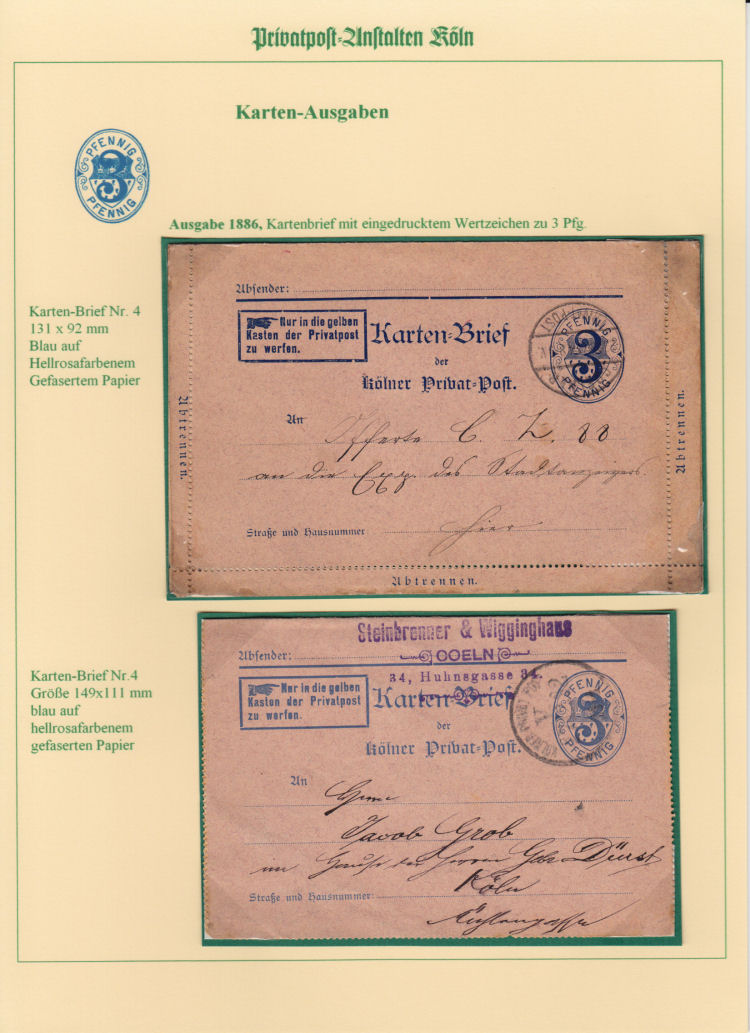 Privatpost-Anstalten Köln
Karten-Ausgaben
PFENNIG
3
PFENNIG
Ausgabe 1886, Kartenbrief mit eingedrucktem Wertzeichen zu 3 Pfg.
Karten-Brief Nr. 4
131 x 92 mm
Blau auf
Hellrosafarbenem
Gefasertem Papier
Absender:
Nur in die gelben
Kasten der Privatpost
zu werfen.
Karten-Brief
der
Kölner Privat-Post.
PFENNIG
3
PFENNIG
POST
An
Offerte C. Z. 88
an die Exp. des Stadtanzeigers.
Straße und Hausnummer
hier
Abtrennen.
Abtrennen.
Abtrennen.
Karten-Brief Nr.4
Größe 149x111 mm
blau auf
hellrosafarbenem
gefaserten Papier
Steinbrenner & Wigginghaus
COELN
34, Huhnsgasse 34.
Absender:
Nur in die gelben
Kasten der Privatpost
zu werfen.
Karten-Brief
der
Kölner Privat-Post.
PFENNIG
3
PFENNIG
An
Herrn
Jacob Grob
im Hause der Herren Gebr. Dürst
Köln
Straße und Hausnummer: